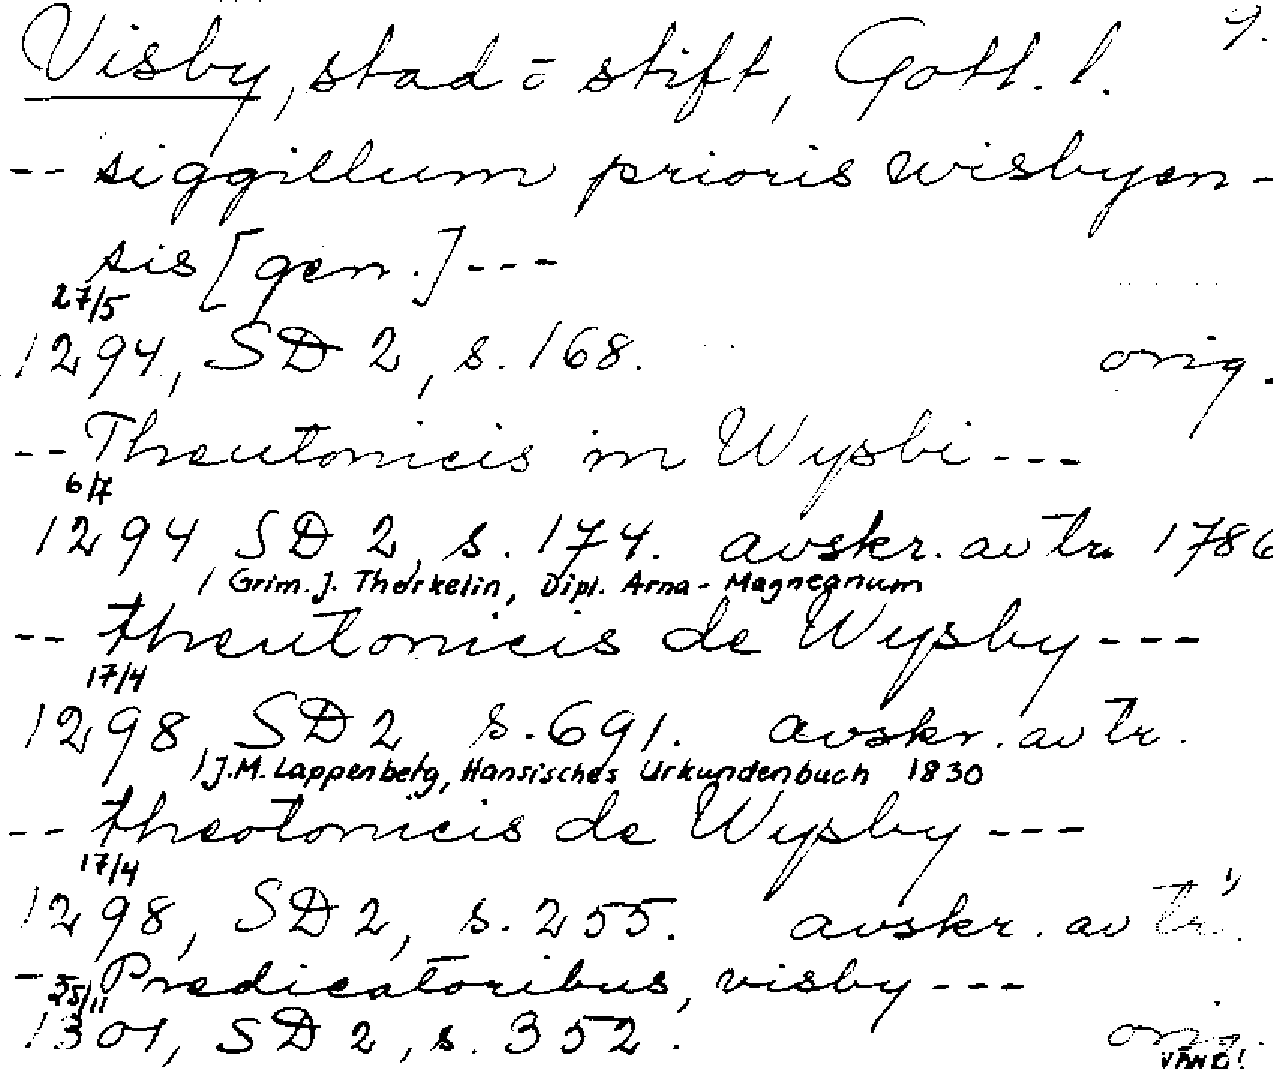 Visby, stad o stift, Gotl. l. 9.
-- siggillum prioris wisbyen-
sis [gen.] ---
27/5
1294, SD 2, s. 168. orig.
-- Theutonicis in Wysbi ---
6/7
1294 SD 2, s. 174. avskr. av tr. 1786
/ Grim. J. Thorkelin, Dipl. Arna-Magneanum
-- theutonicis de Wysby ---
17/4
1298, SD 2, s. 691. avskr. av tr.
/ J.M. Lappenberg, Hansisches Urkundenbuch 1830
-- theotonicis de Wysby ---
17/4
1298, SD 2, s. 255. avskr. av tr. 1)
-- Predicatoribus, visby ---
25/11
1301, SD 2, s. 352. orig.
VÄND!